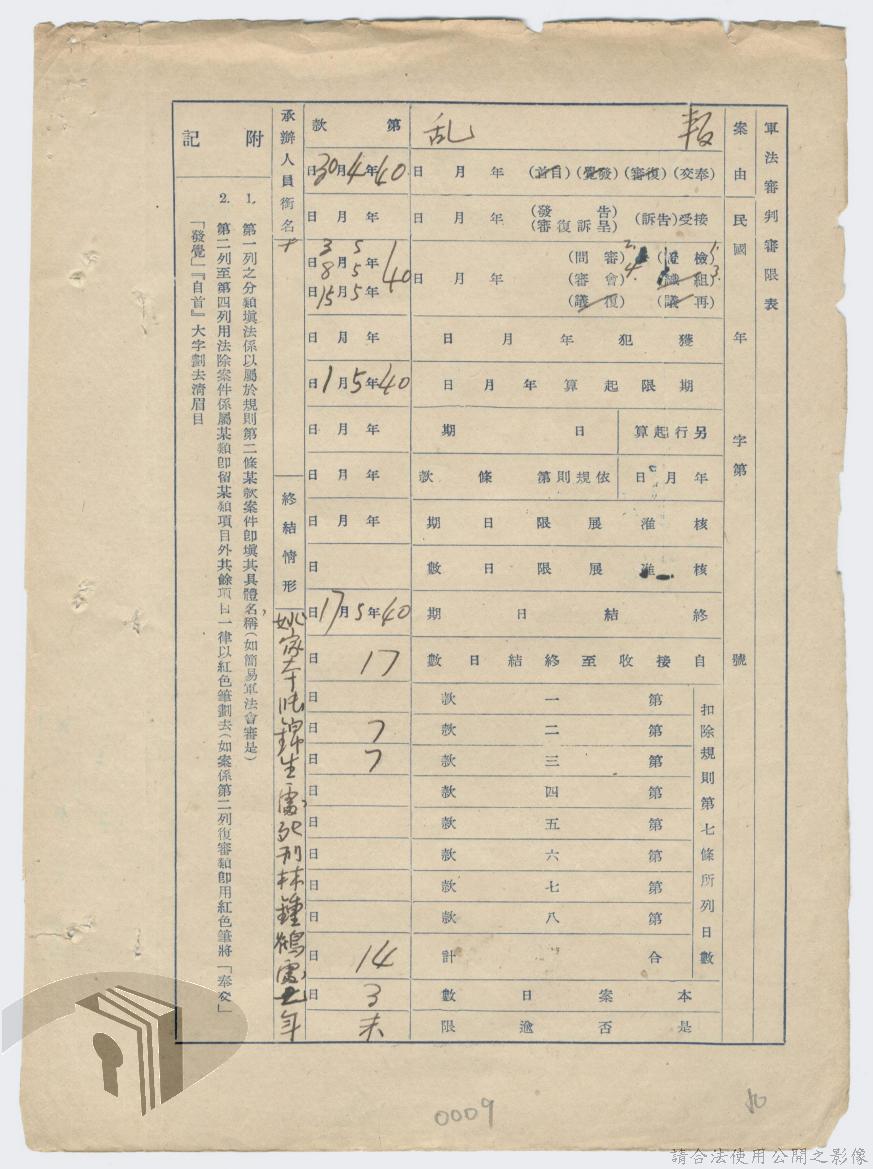 軍法審判審限表
案由 民國 年 字第 號
叛 乱 第 款
奉交(復審)(發覺)(自首) 年 月 日 40年4月30日
接受(告訴)(告發)(呈訴復審) 年 月 日 年 月 日
(檢證)1.(審問)2.(組織)3.(會審)4.(再議)(復議) 年 月 日 40 5月3日 5月8日 5月15日
獲犯年月日 年 月 日
期限起算年月日 40年5月1日
另行起算日期 年 月 日
年月日依規則第 條 款 年 月 日
核准展限日期 年 月 日
核准展限日數 日
終結日期 40年5月17日
自接收至終結日數 17日
扣除規則第七條所列日數
第一款 日
第二款 7日
第三款 7日
第四款 日
第五款 日
第六款 日
第七款 日
第八款 日
合計 14日
本案日數 3日
是否逾限 未
承辦人員銜名
終結情形 姚 錦生處死刑林鍾鶴處 年
附記
1.第一列之分類填法係以屬於規則第二條某款案件卽填其具體名稱(如簡易軍法會審是)
2.第二列至第四列用法除案件係屬某類卽留某類項目外其餘項目一律以紅色筆劃去(如案係第二列復審類卽用紅色筆將「奉交」
「發覺」『自首』大字劃去淸眉目
0009
10
請合法使用公開之影像